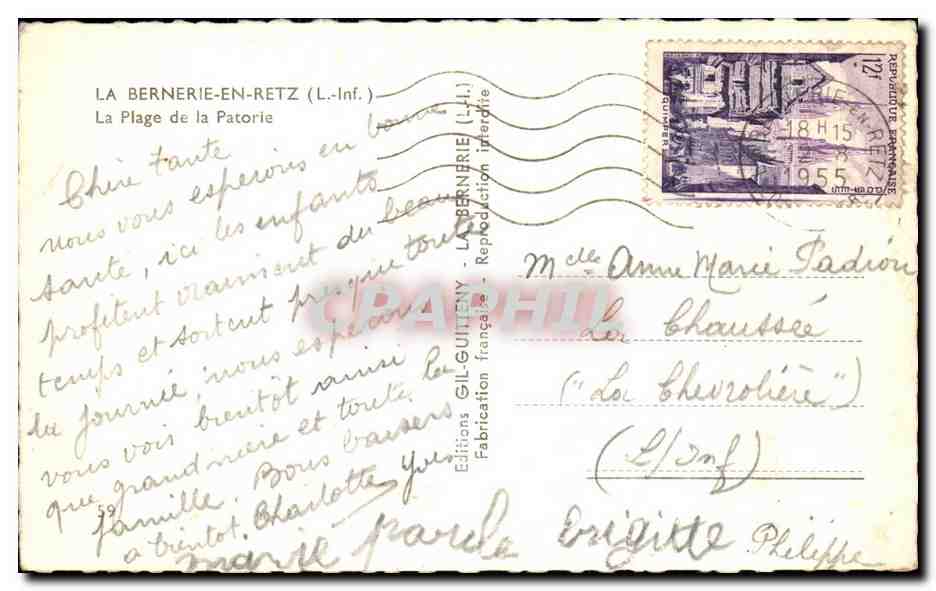 LA BERNERIE-EN-RETZ (L.-Inf.)
La Plage de la Patorie
Chère tante
nous vous espérons en bonne
santé, ici les enfants
profitent vraiment du beau
temps et sortent presque toute
la journée, nous espérons
vous voir bientôt ainsi
que grand mère et toute la
famille. Bons baisers
59
a bientot Charlotte Yves
marie paule brigitte Philippe
Editions GIL-GUITTENY - LA BERNERIE (L.-I.)
Fabrication française - Reproduction interdite
12f
REPUBLIQUE FRANÇAISE
QUIMPER
18 H 15
1955
Melle Anne Marie Padiou
La Chaussée
("La Chevrolière")
(L/Inf)
CPAPHIL